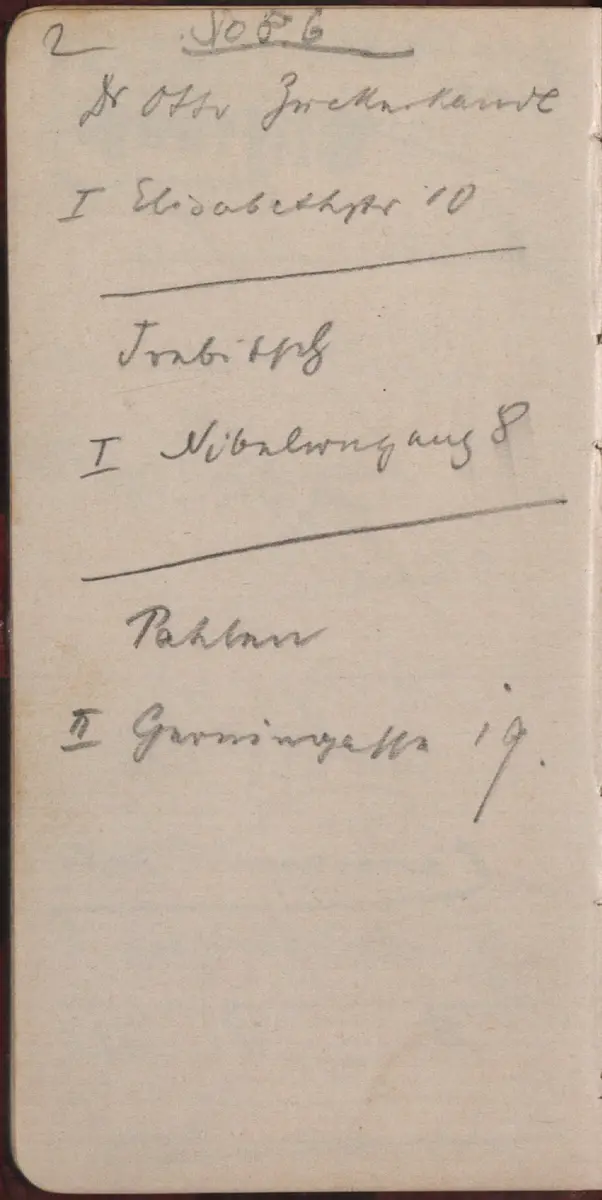 2
Dr Otto Zuckerkandl
I Elisabethstr 10
Trebitsch
I Nibelungengasse 8
Pahlen
II Czerningasse 19.